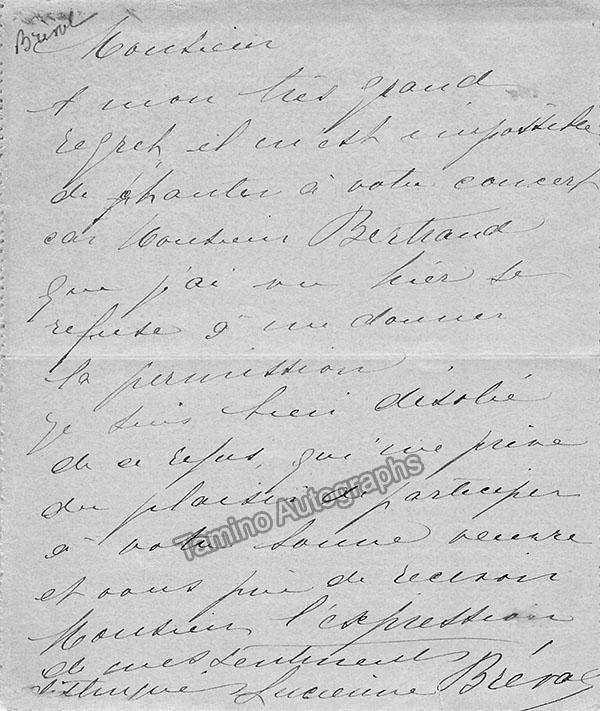 Bréval
Monsieur
A mon très grand
regret, il m'est impossible
de chanter à votre concert
car Monsieur Bertrand
que j'ai vu hier se
refuse à me donner
la permission
je suis bien désolée
de ce refus, qui me prive
du plaisir de participer
à votre bonne oeuvre
et vous prie de recevoir
Monsieur l'expression
de mes sentiments
distingués Lucienne Bréval
Tamino Autographs